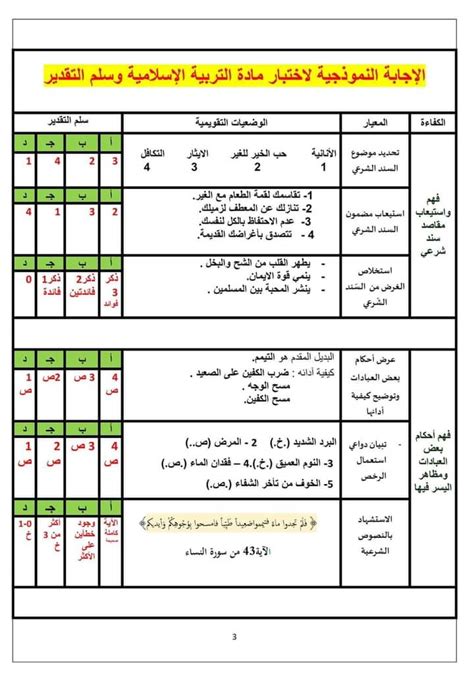 الإجابة النموذجية لاختبار مادة التربية الإسلامية وسلم التقدير
الكفاءة
المعيار
الوضعيات التقويمية
سلم التقدير
أ ب جـ د
فهم
واستيعاب
مقاصد
سند
شرعي
تحديد موضوع
السند الشرعي
الأنانية حب الخير للغير الايثار التكافل
1 2 3 4
3 2 4 1
استيعاب مضمون
السند الشرعي
1- تقاسمك لقمة الطعام مع الغير.
2- تنازلك عن المعطف لزميلك.
3- عدم الاحتفاظ بالكل لنفسك.
4 - تتصدق بأغراضك القديمة.
أ ب جـ د
2 3 1 4
استخلاص
الغرض من السّند
الشّرعي
- يطهر القلب من الشح والبخل.
- ينمي قوة الايمان.
- ينشر المحبة بين المسلمين.
أ ب جـ د
ذكر
3
فوائد
ذكر2
فائدتين
ذكر1
فائدة
0
فهم أحكام
بعض
العبادات
ومظاهر
اليسر فيها
عرض أحكام
بعض العبادات
وتوضيح كيفية
أدائها
البديل المقدم هو التيمم.
كيفية أدائه : ضرب الكفين على الصعيد .
مسح الوجه .
مسح الكفين.
أ ب جـ د
4
ص
3 ص
2ص
1
ص
- تبيان دواعي
استعمال
الرخص
البرد الشديد (.خ.) 2 - المرض (ص..)
3- النوم العميق (.خ.)4 – فقدان الماء (..ص)
5- الخوف من تأخر الشفاء (.ص.)
أ ب جـ د
4
ص
3 ص
2
ص
1
ص
الاستشهاد
بالنصوص
الشرعية
﴿ فَلَمْ تَجِدُوا مَاءً فَتَيَمَّمُوا صَعِيداً طَيِّباً فَامْسَحُوا بِوُجُوهِكُمْ وَأَيْدِيكُمْ ﴾
الآية43 من سورة النساء
أ ب جـ د
الآية
كاملة
وجود
خطأين
على
الأكثر
أكثر
من 3
خ
0-1
خ
3